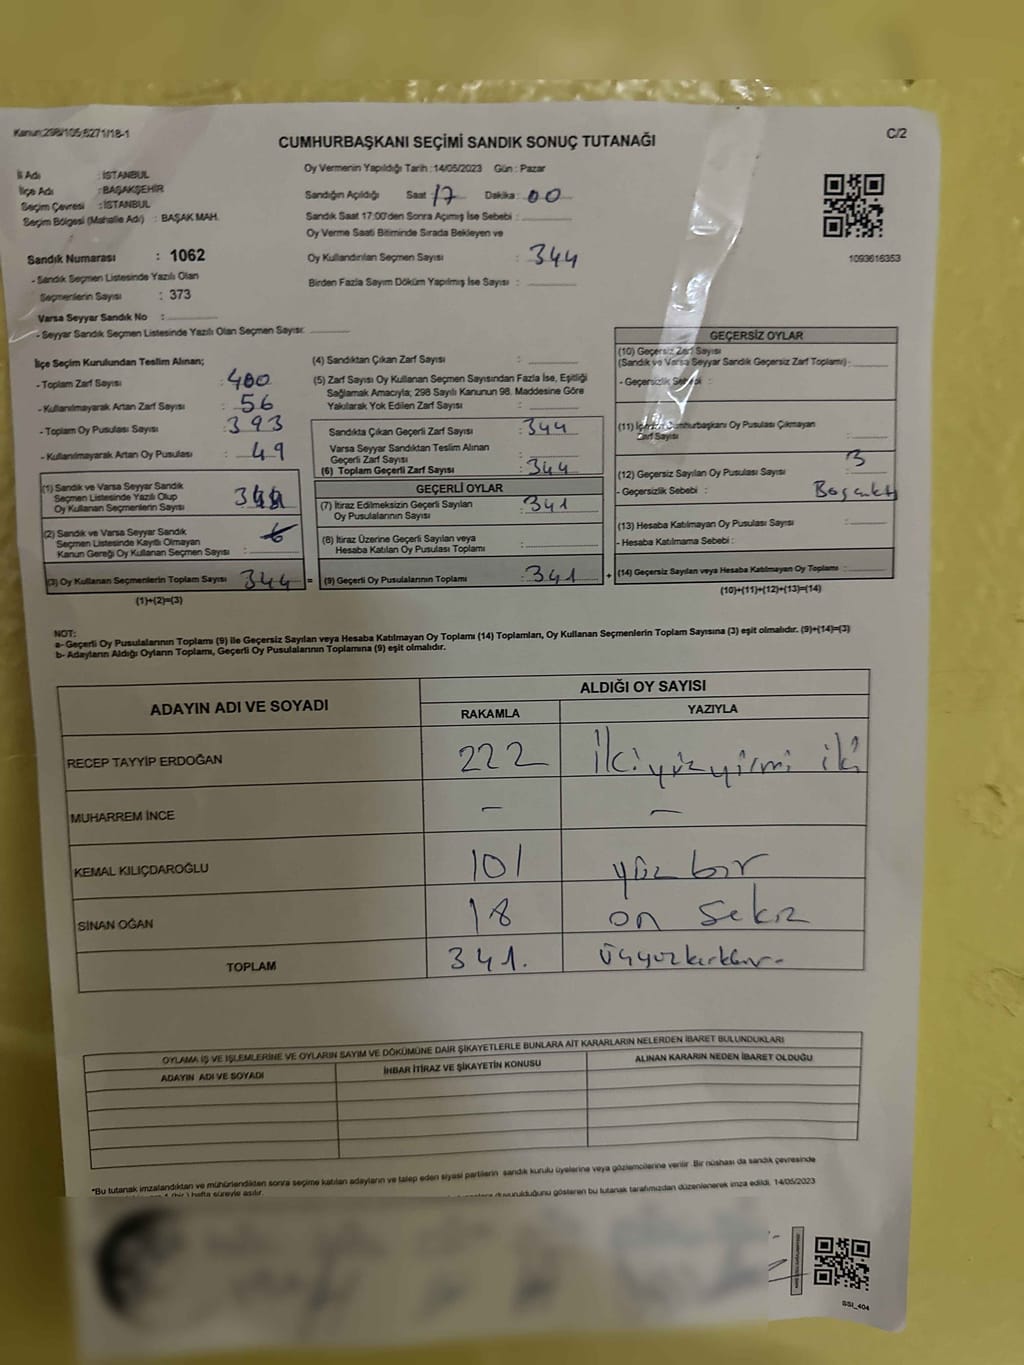 Kanun;298/105;6271/18-1
C/2
CUMHURBAŞKANI SEÇİMİ SANDIK SONUÇ TUTANAĞI
İl Adı : İSTANBUL
İlçe Adı : BAŞAKŞEHİR
Seçim Çevresi : İSTANBUL
Seçim Bölgesi (Mahalle Adı) : BAŞAK MAH.
Sandık Numarası : 1062
- Sandık Seçmen Listesinde Yazılı Olan
Seçmenlerin Sayısı : 373
Varsa Seyyar Sandık No :
- Seyyar Sandık Seçmen Listesinde Yazılı Olan Seçmen Sayısı:
Oy Vermenin Yapıldığı Tarih :14/05/2023 Gün : Pazar
Sandığın Açıldığı Saat : 17 Dakika : 00
Sandık Saat 17:00'den Sonra Açımış İse Sebebi :
Oy Verme Saati Bitiminde Sırada Bekleyen ve
Oy Kullandırılan Seçmen Sayısı : 344
Birden Fazla Sayım Döküm Yapılmış İse Sayısı :
1093616353
İlçe Seçim Kurulundan Teslim Alınan;
- Toplam Zarf Sayısı : 400
- Kullanılmayarak Artan Zarf Sayısı : 56
- Toplam Oy Pusulası Sayısı : 393
- Kullanılmayarak Artan Oy Pusulası : 49
(1) Sandık ve Varsa Seyyar Sandık
Seçmen Listesinde Yazılı Olup
Oy Kullanan Seçmenlerin Sayısı :
(2) Sandık ve Varsa Seyyar Sandık
Seçmen Listesinde Kayıtlı Olmayan
Kanun Gereği Oy Kullanan Seçmen Sayısı :
(3) Oy Kullanan Seçmenlerin Toplam Sayısı 344 =
(1)+(2)=(3)
(4) Sandıktan Çıkan Zarf Sayısı :
(5) Zarf Sayısı Oy Kullanan Seçmen Sayısından Fazla İse, Eşitliği
Sağlamak Amacıyla; 298 Sayılı Kanunun 98. Maddesine Göre
Yakılarak Yok Edilen Zarf Sayısı :
Sandıkta Çıkan Geçerli Zarf Sayısı : 344
Varsa Seyyar Sandıktan Teslim Alınan
Geçerli Zarf Sayısı :
(6) Toplam Geçerli Zarf Sayısı : 344
GEÇERLİ OYLAR
(7) İtiraz Edilmeksizin Geçerli Sayılan
Oy Pusulalarının Sayısı : 341
(8) İtiraz Üzerine Geçerli Sayılan veya
Hesaba Katılan Oy Pusulası Toplamı :
(9) Geçerli Oy Pusulalarının Toplamı : 341 +
GEÇERSİZ OYLAR
(10) Geçersiz Zarf Sayısı
(Sandık ve Varsa Seyyar Sandık Geçersiz Zarf Toplamı) :
- Geçersizlik Sebebi :
(11) Cumhurbaşkanı Oy Pusulası Çıkmayan
Zarf Sayısı :
(12) Geçersiz Sayılan Oy Pusulası Sayısı : 3
- Geçersizlik Sebebi :
(13) Hesaba Katılmayan Oy Pusulası Sayısı :
- Hesaba Katılmama Sebebi :
(14) Geçersiz Sayılan veya Hesaba Katılmayan Oy Toplamı :
(10)+(11)+(12)+(13)=(14)
NOT:
a- Geçerli Oy Pusulalarının Toplamı (9) ile Geçersiz Sayılan veya Hesaba Katılmayan Oy Toplamı (14) Toplamları, Oy Kullanan Seçmenlerin Toplam Sayısına (3) eşit olmalıdır. (9)+(14)=(3)
b- Adayların Aldığı Oyların Toplamı, Geçerli Oy Pusulalarının Toplamına (9) eşit olmalıdır.
ADAYIN ADI VE SOYADI
ALDIĞI OY SAYISI
RAKAMLA YAZIYLA
RECEP TAYYİP ERDOĞAN 222 İkiyüzyirmi iki
MUHARREM İNCE - -
KEMAL KILIÇDAROĞLU 101 yüz bir
SİNAN OĞAN 18 on sekiz
TOPLAM 341. üçyüzkırkbir-
OYLAMA İŞ VE İŞLEMLERİNE VE OYLARIN SAYIM VE DÖKÜMÜNE DAİR ŞİKAYETLERLE BUNLARA AİT KARARLARIN NELERDEN İBARET BULUNDUKLARI
ADAYIN ADI VE SOYADI İHBAR İTİRAZ VE ŞİKAYETİN KONUSU ALINAN KARARIN NEDEN İBARET OLDUĞU
*Bu tutanak imzalandıktan ve mühürlendikten sonra seçime katılan adayların ve talep eden siyasi partilerin sandık kurulu üyelerine veya gözlemcilerine verilir. Bir nüshası da sandık çevresinde
1 (bir) hafta süreyle asılır.
duyurulduğunu gösteren bu tutanak tarafımızdan düzenlenerek imza edildi. 14/05/2023
SSI_404